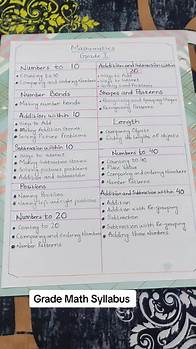 Mathematics
Grade 1
Numbers to 10
Counting to 10
Comparing and ordering Numbers
Number Bonds
Making number bonds
Addition within 10
Ways to Add
Making Addition Stories
Solving Picture Problems
Subtraction within 10
Ways to subtract
Making subtraction stories
Solving picture problems
Addition and subtraction
Positions
Naming Positions
Naming left and right positions
Numbers to 20
Counting to 20
Comparing and ordering Numbers
Number Patterns
Addition and Subtraction within 20
Ways to Add
Ways to Subtract
Solving word Problems
Shapes and Patterns
Recognising and Grouping Shapes
Recognising Patterns
Length
Comparing Objects
Numbers to 40
Counting to 40
Place Value
Comparing and ordering Numbers
Number Patterns
Addition and Subtraction within 40
Addition
Addition with Re-grouping
Subtraction
Subtraction with Re-grouping
Adding three Numbers
Grade Math Syllabus